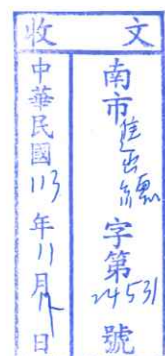 收文
南市字第24531號
中華民國113年11月日